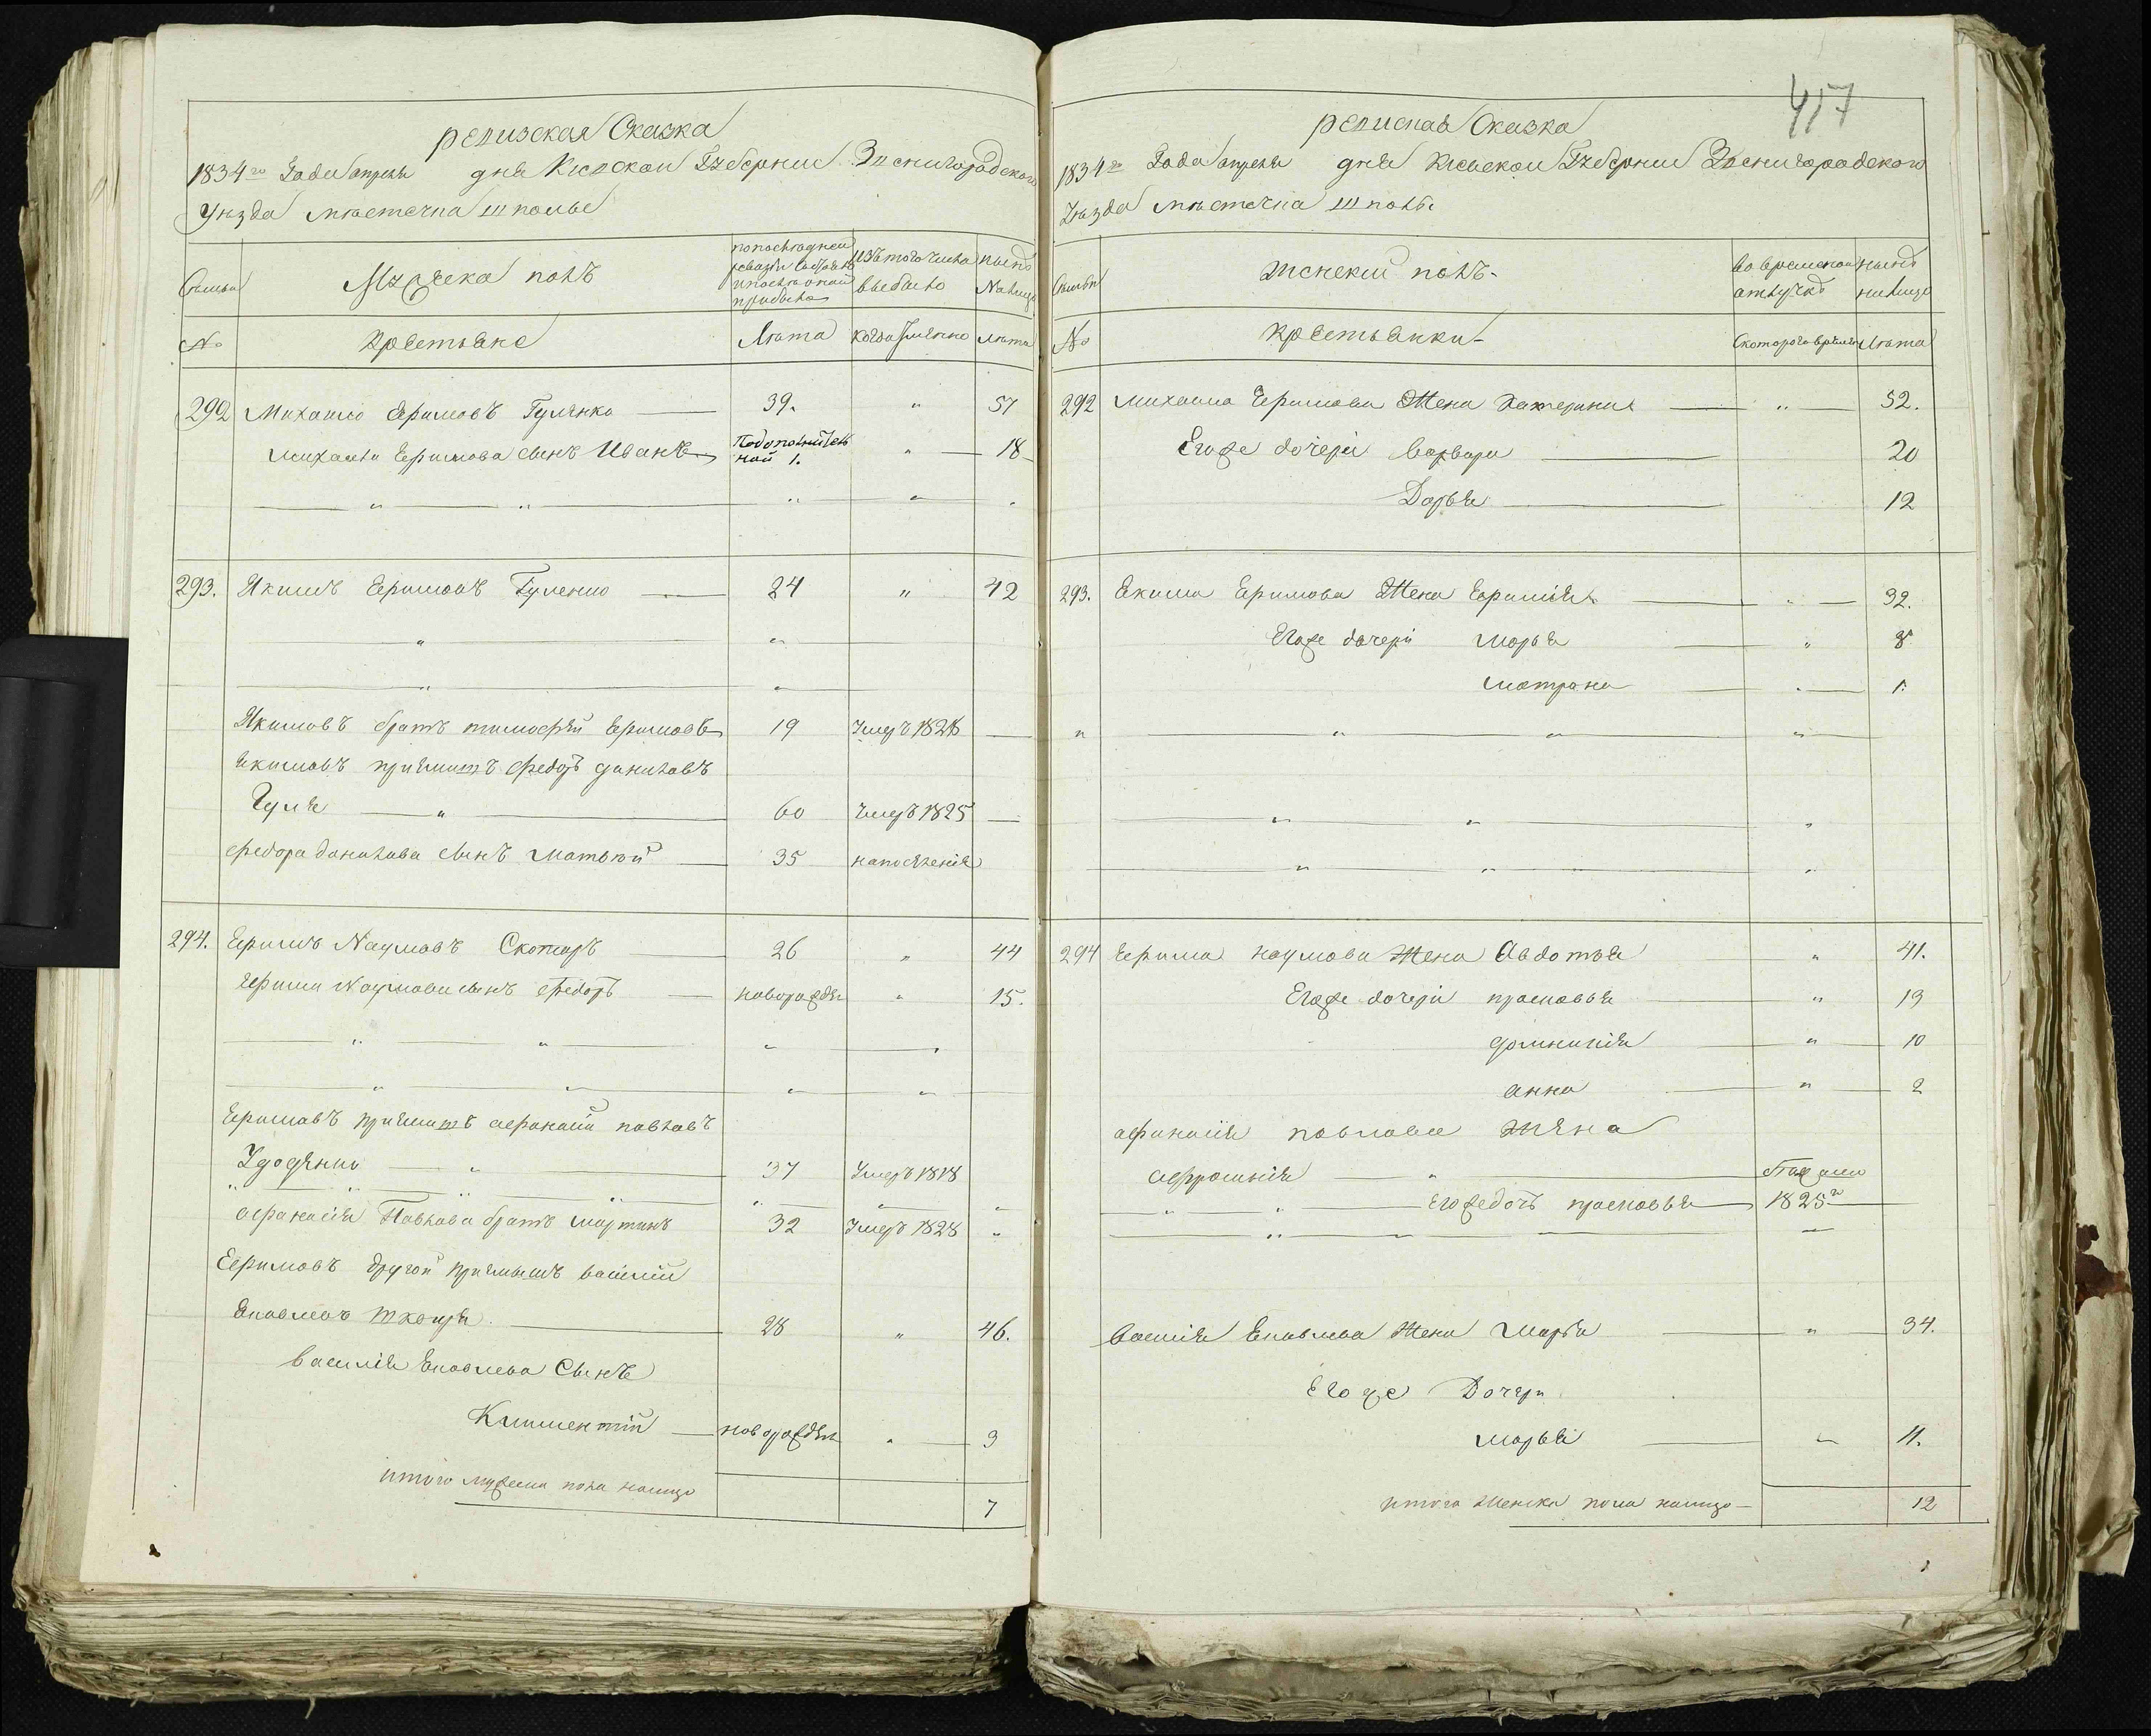 ревизская Сказка
1834го Года апреля дня Киевской Губернии Звенигородского
Уезда местечка Шполы
Семьи
Мужеска полъ
по последней ревизіи состояло и после оной прибыло
изъ того числа выбыло
ныне налицо
№
Крестьяне
Лета
когда именно
лета
292 Михайло Ефимовъ Гуленко 39. " 57
Михайла Ефимова сынъ Иванъ По дополнительной 1. " 18
293. Якимъ Ефимовъ Гуленко 24 " 42
Якимовъ братъ тимофей Ефимовъ 19 Умеръ 1828
Якимовъ приимышъ Федоръ даниловъ
Гуля " 60 Умеръ 1825
Федора данилова сынъ Матвей 35 на поселеніе
294. Ефимъ Наумовъ Скотаръ 26 " 44
Ефима Наумова сынъ Федоръ новорожден " 15.
Ефимовъ приимышъ афанасій павловъ
Удоденко " 37 Умеръ 1818
афанасія Павлова братъ мартинъ 32 Умеръ 1828 "
Ефимовъ другой приимышъ василій
Яковлевъ 28 " 46.
Василія Яковлева Сынъ
Климентий новорожден " 3
итого мужеска пола налицо
7
457
ревизская Сказка
1834го Года апреля дня Киевской Губернии Звенигородского
Уезда местечка Шполы
Семьи
женский полъ
во временной отлучке
ныне налицо
№
Крестьянки
с которого времени
Лета
292 михайла Ефимова Жена Катерина " 52.
Его же дочери варвара 20
Дарья 12
293. Екима Ефимова Жена Ефимія " 32.
Его же дочери марья " 8
матрона " 1.
294 Ефима наумова Жена Авдотья " 41.
Его же дочери прасковья " 19
домникія " 10
анна " 2
афанасія павлова жена
афросинія "
Его же дочь прасковья 1825го
василія Яковлева Жена Марья " 34.
Его же Дочери
марья " 11.
итого женска пола налицо 12